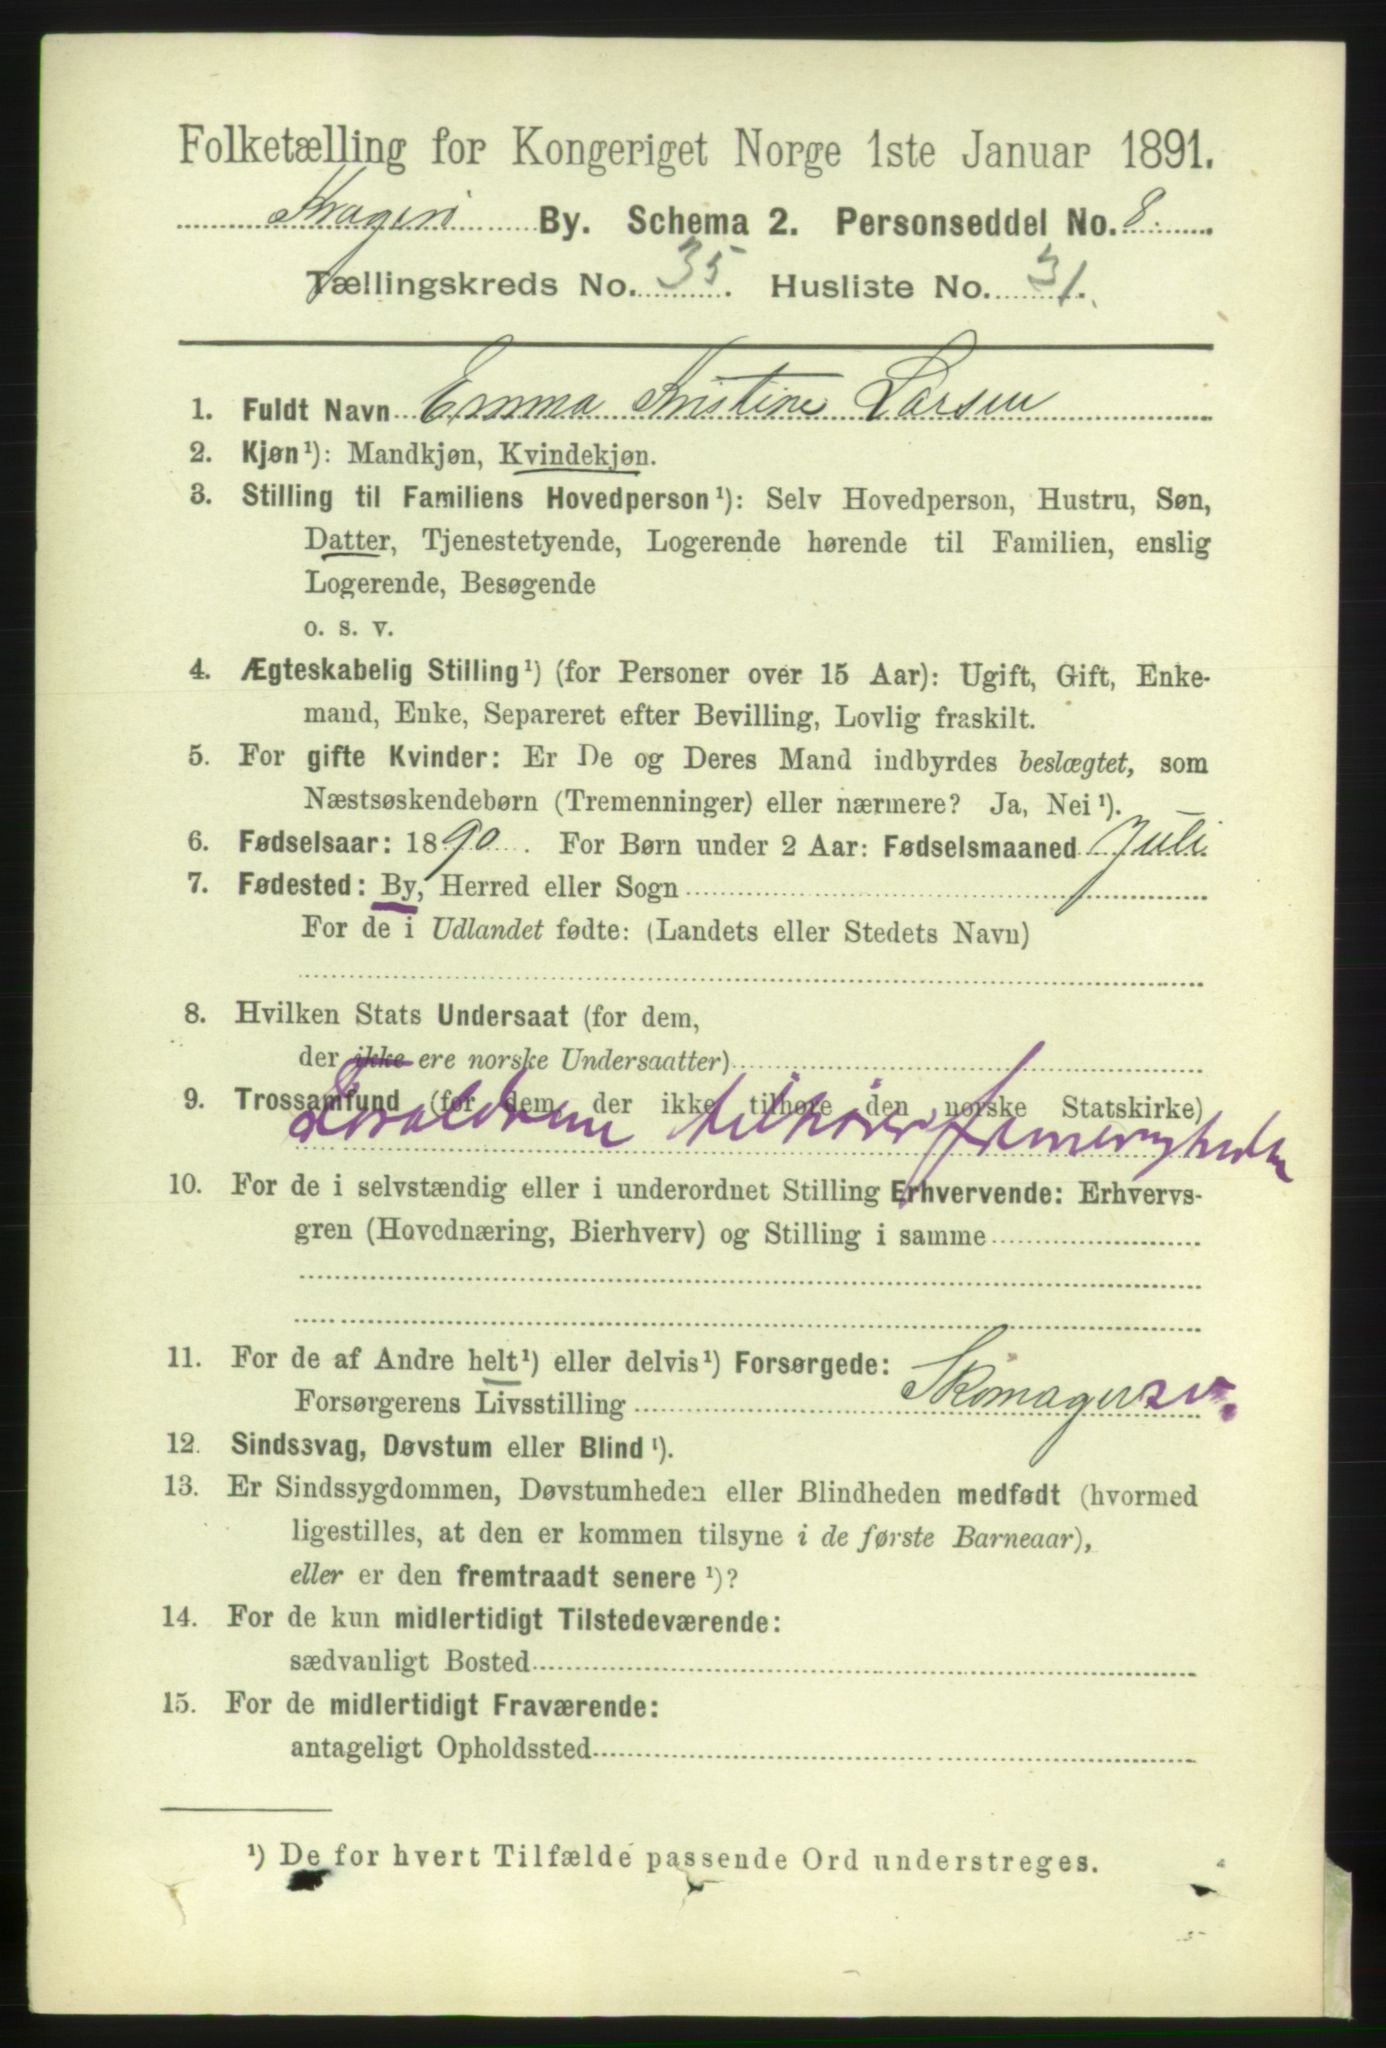 Folketælling for Kongeriget Norge 1ste Januar 1891.
Kragerø By. Schema 2. Personseddel No. 8.
Tællingskreds No. 35. Husliste No. 31.
1. Fuldt Navn Emma Kristine Larsen
2. Kjøn¹): Mandkjøn, Kvindekjøn.
3. Stilling til Familiens Hovedperson¹): Selv Hovedperson, Hustru, Søn,
Datter, Tjenestetyende, Logerende hørende til Familien, enslig
Logerende, Besøgende
o. s. v.
4. Ægteskabelig Stilling¹) (for Personer over 15 Aar): Ugift, Gift, Enke-
mand, Enke, Separeret efter Bevilling, Lovlig fraskilt.
5. For gifte Kvinder: Er De og Deres Mand indbyrdes beslægtet, som
Næstsøskendebørn (Tremenninger) eller nærmere? Ja, Nei¹).
6. Fødselsaar: 1890. For Børn under 2 Aar: Fødselsmaaned Juli.
7. Fødested: By, Herred eller Sogn
For de i Udlandet fødte: (Landets eller Stedets Navn)
8. Hvilken Stats Undersaat (for dem,
der ikke ere norske Undersaatter)
9. Trossamfund (for dem, der ikke tilhøre den norske Statskirke)
Foraldrene tilhører
10. For de i selvstændig eller i underordnet Stilling Erhvervende: Erhvervs-
gren (Hovednæring, Bierhverv) og Stilling i samme
11. For de af Andre helt¹) eller delvis¹) Forsørgede:
Forsørgerens Livsstilling Skomagersv.
12. Sindssvag, Døvstum eller Blind¹).
13. Er Sindssygdommen, Døvstumheden eller Blindheden medfødt (hvormed
ligestilles, at den er kommen tilsyne i de første Barneaar),
eller er den fremtraadt senere¹)?
14. For de kun midlertidigt Tilstedeværende:
sædvanligt Bosted
15. For de midlertidigt Fraværende:
antageligt Opholdssted
¹) De for hvert Tilfælde passende Ord understreges.